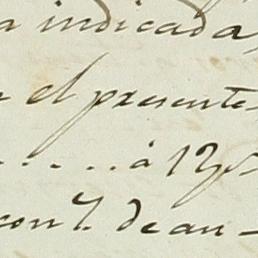 a indicada,
el presente
. . . . . à 12
con
de an -